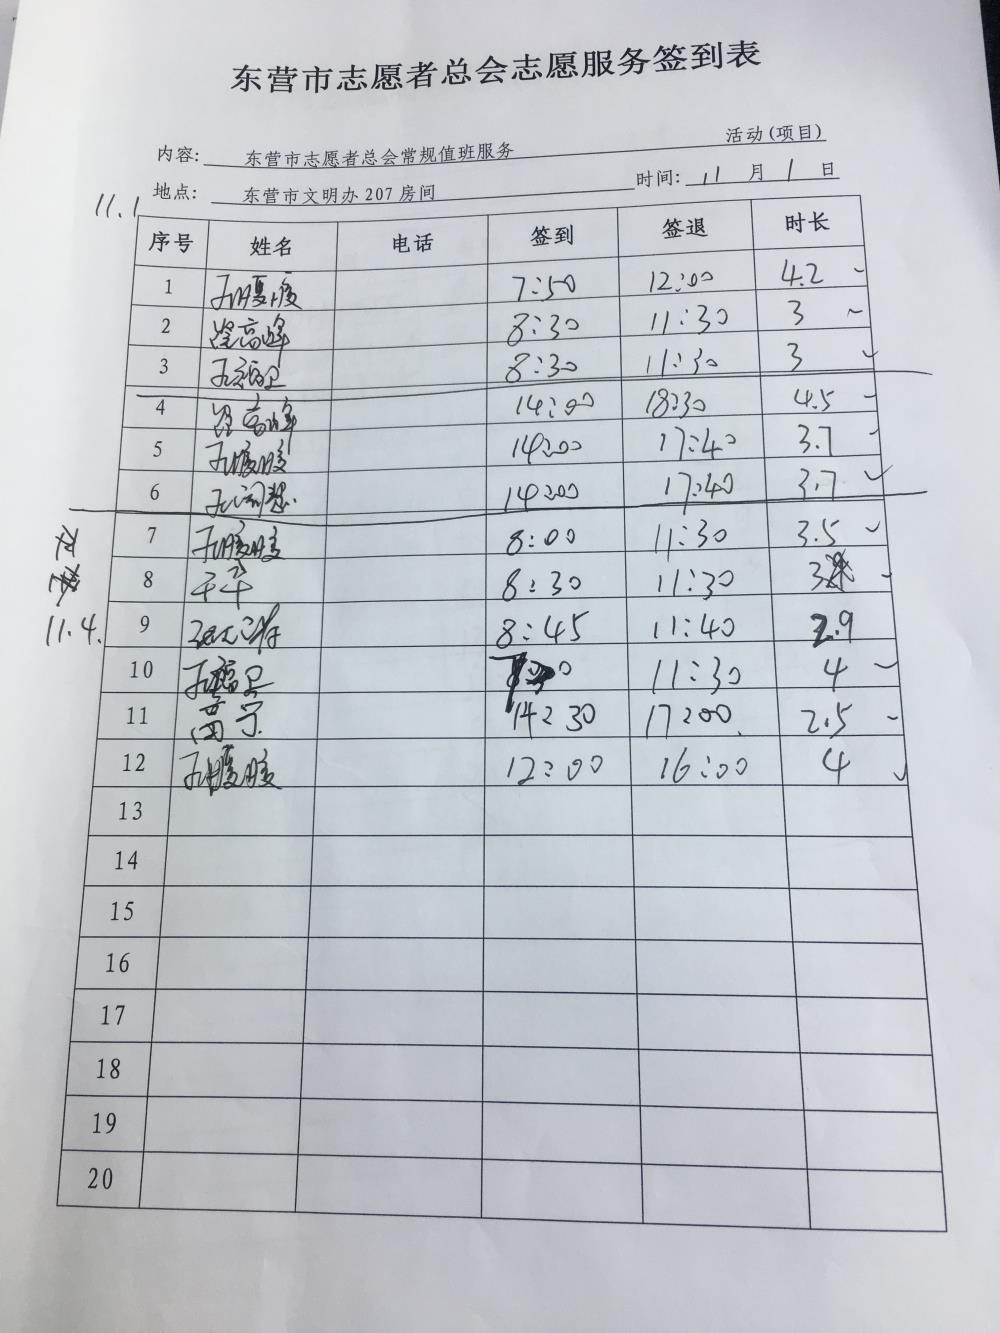 东营市志愿者总会志愿服务签到表
内容: 东营市志愿者总会常规值班服务 活动(项目)
地点: 东营市文明办207房间 时间: 11 月 1 日
11.1
序号 姓名 电话 签到 签退 时长
1 7:50 12:00 4.2
2 高峰 8:30 11:30 3
3 8:30 11:30 3
4 高峰 14:00 18:30 4.5
5 14:00 17:40 3.7
6 14:00 17:40 3.7
7 8:00 11:30 3.5
8 8:30 11:30 3
11.4. 9 8:45 11:40 2.9
10 11:30 4
11 14:30 17:00 2.5
12 12:00 16:00 4
13
14
15
16
17
18
19
20